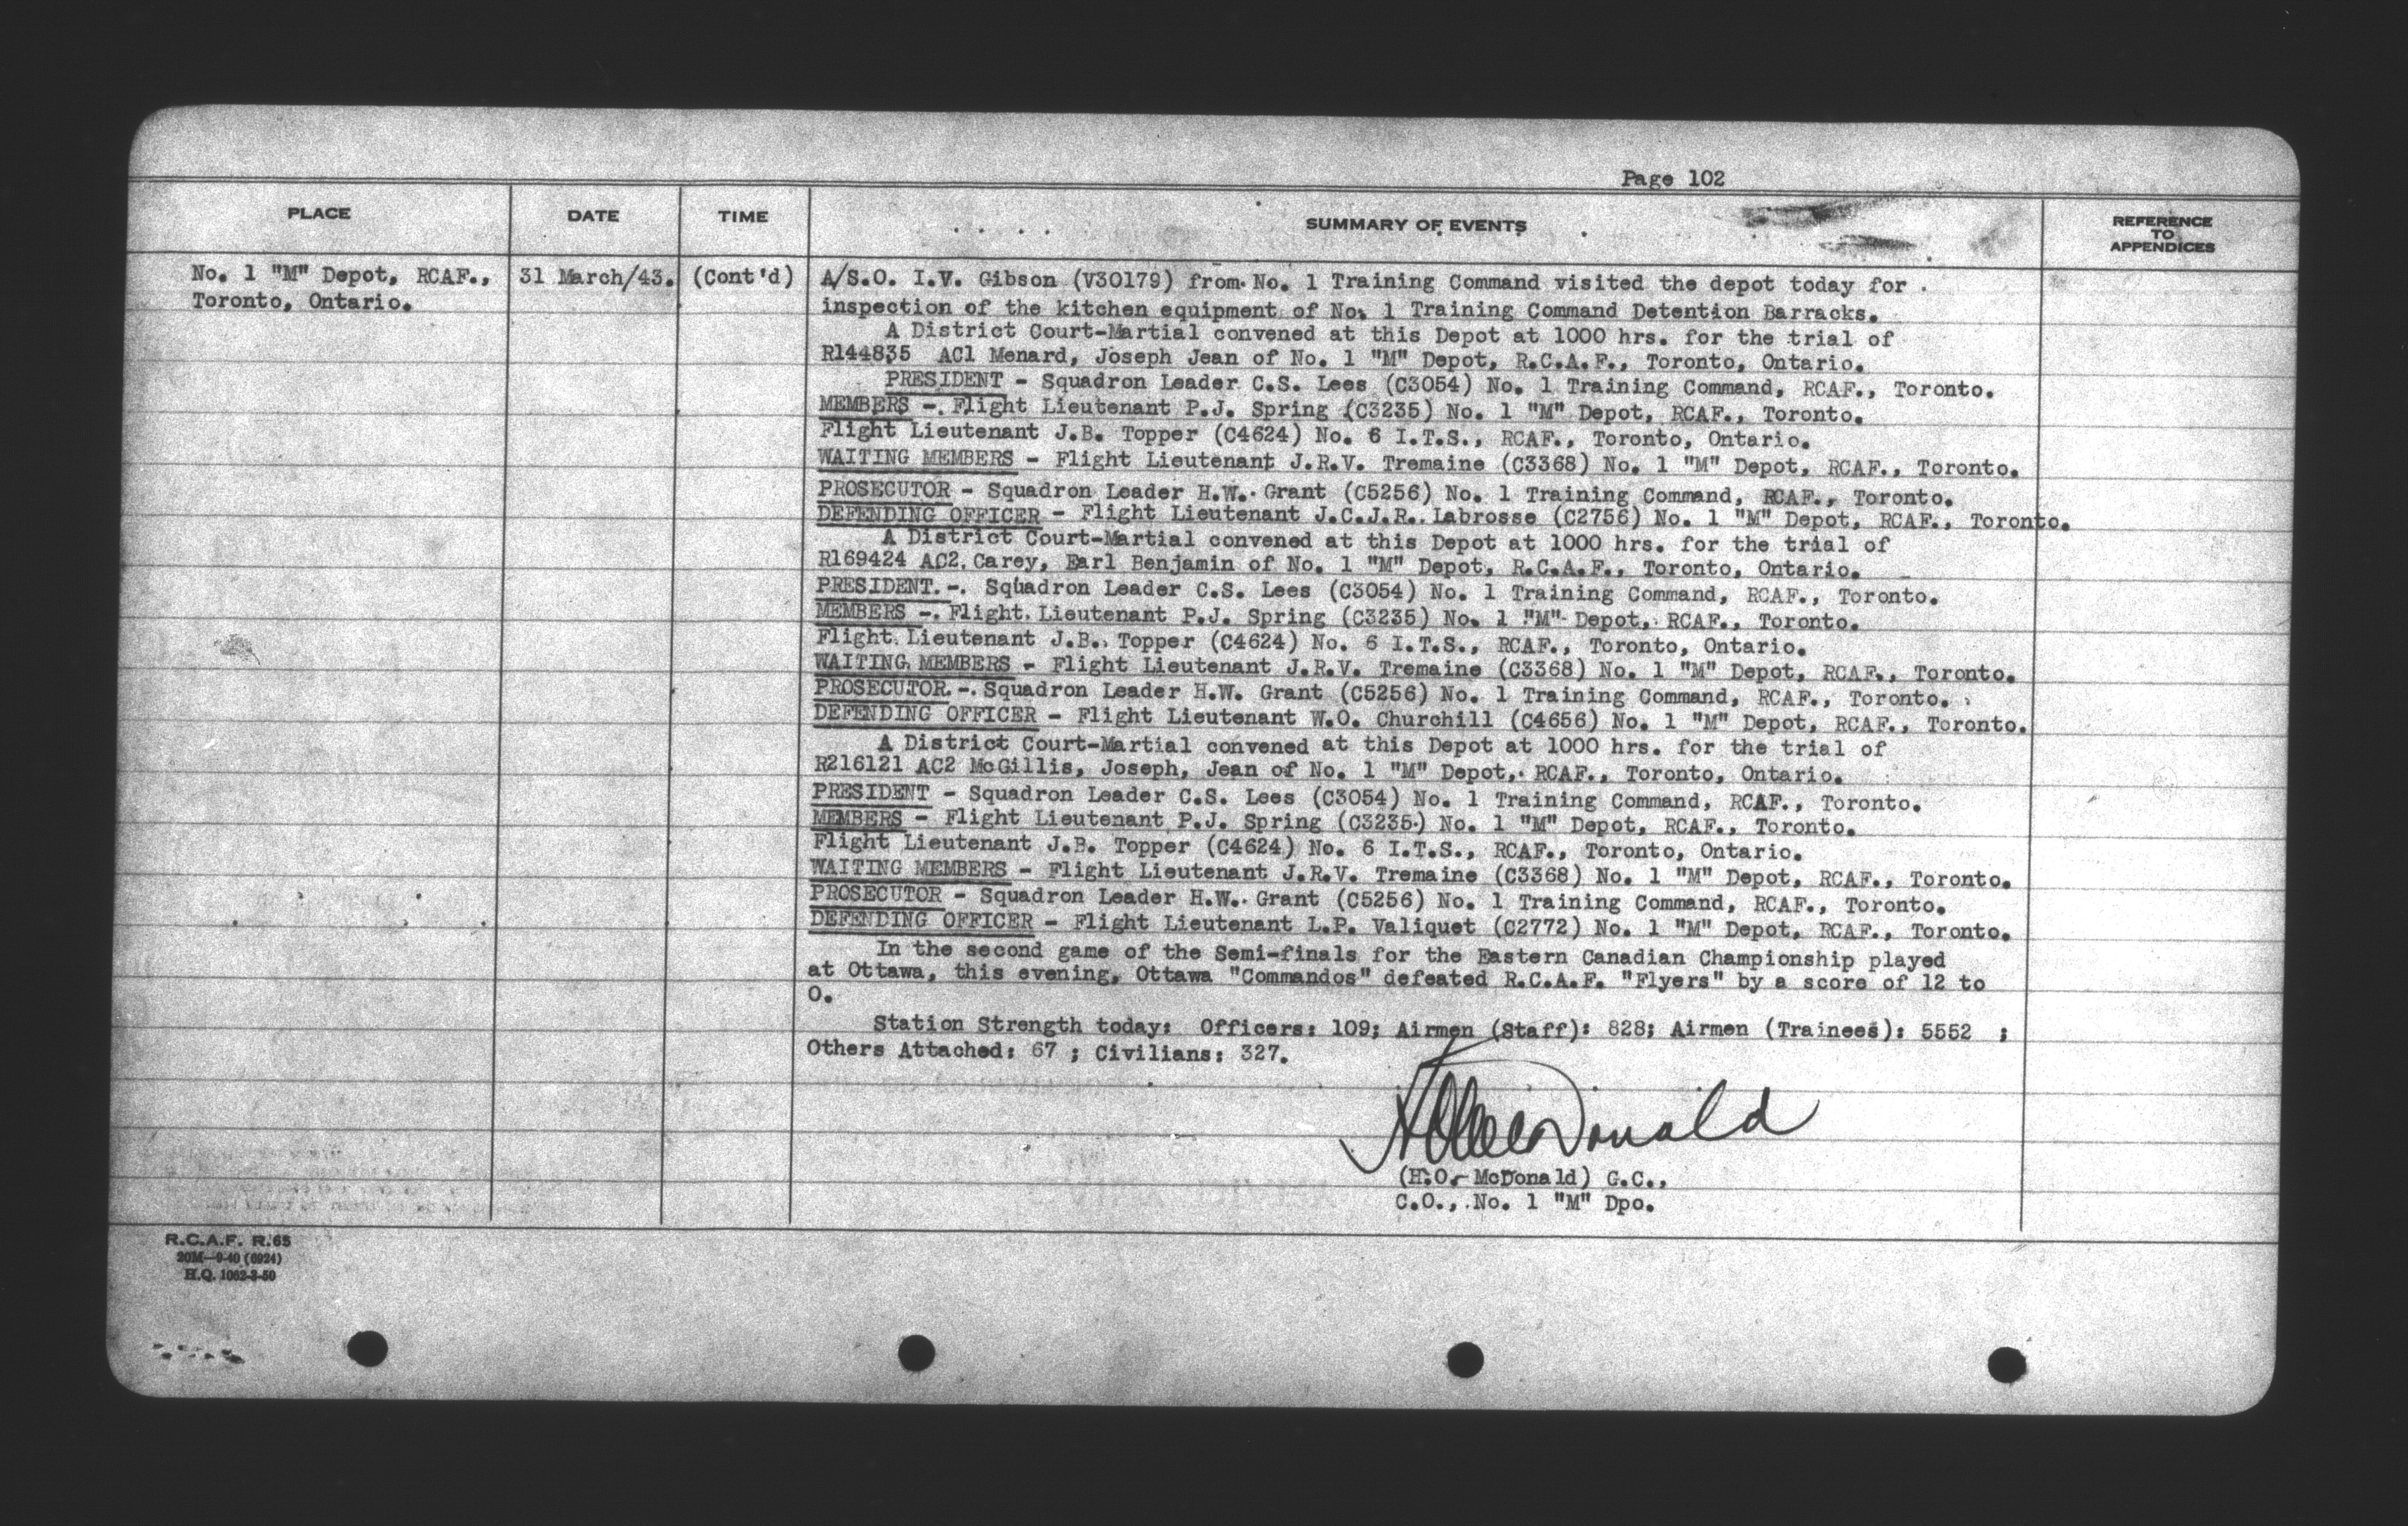 Page 102
PLACE DATE TIME SUMMARY OF EVENTS REFERENCE TO APPENDICES
No. 1 "M" Depot, RCAF., 31 March/43. (Cont'd)
Toronto, Ontario.
A/S.O. I.V. Gibson (V30179) from No. 1 Training Command visited the depot today for
inspection of the kitchen equipment of No. 1 Training Command Detention Barracks.
A District Court-Martial convened at this Depot at 1000 hrs. for the trial of
R144835 AC1 Menard, Joseph Jean of No. 1 "M" Depot, R.C.A.F., Toronto, Ontario.
PRESIDENT - Squadron Leader C.S. Lees (C3054) No. 1 Training Command, RCAF., Toronto.
MEMBERS - Flight Lieutenant P.J. Spring (C3235) No. 1 "M" Depot, RCAF., Toronto.
Flight Lieutenant J.B. Topper (C4624) No. 6 I.T.S., RCAF., Toronto, Ontario.
WAITING MEMBERS - Flight Lieutenant J.R.V. Tremaine (C3368) No. 1 "M" Depot, RCAF., Toronto.
PROSECUTOR - Squadron Leader H.W. Grant (C5256) No. 1 Training Command, RCAF., Toronto.
DEFENDING OFFICER - Flight Lieutenant J.C.J.R. Labrosse (C2756) No. 1 "M" Depot, RCAF., Toronto.
A District Court-Martial convened at this Depot at 1000 hrs. for the trial of
R169424 AC2. Carey, Earl Benjamin of No. 1 "M" Depot, R.C.A.F., Toronto, Ontario.
PRESIDENT. -. Squadron Leader C.S. Lees (C3054) No. 1 Training Command, RCAF., Toronto.
MEMBERS -. Flight. Lieutenant P.J. Spring (C3235) No. 1 "M" Depot, RCAF., Toronto.
Flight Lieutenant J.B. Topper (C4624) No. 6 I.T.S., RCAF., Toronto, Ontario.
WAITING MEMBERS - Flight Lieutenant J.R.V. Tremaine (C3368) No. 1 "M" Depot, RCAF., Toronto.
PROSECUTOR. -. Squadron Leader H.W. Grant (C5256) No. 1 Training Command, RCAF., Toronto.
DEFENDING OFFICER - Flight Lieutenant W.O. Churchill (C4656) No. 1 "M" Depot, RCAF., Toronto.
A District Court-Martial convened at this Depot at 1000 hrs. for the trial of
R216121 AC2 McGillis, Joseph, Jean of No. 1 "M" Depot, RCAF., Toronto, Ontario.
PRESIDENT - Squadron Leader C.S. Lees (C3054) No. 1 Training Command, RCAF., Toronto.
MEMBERS - Flight Lieutenant P.J. Spring (C3235) No. 1 "M" Depot, RCAF., Toronto.
Flight Lieutenant J.B. Topper (C4624) No. 6 I.T.S., RCAF., Toronto, Ontario.
WAITING MEMBERS - Flight Lieutenant J.R.V. Tremaine (C3368) No. 1 "M" Depot, RCAF., Toronto.
PROSECUTOR - Squadron Leader H.W. Grant (C5256) No. 1 Training Command, RCAF., Toronto.
DEFENDING OFFICER - Flight Lieutenant L.P. Valiquet (C2772) No. 1 "M" Depot, RCAF., Toronto.
In the second game of the Semi-finals for the Eastern Canadian Championship played
at Ottawa, this evening, Ottawa "Commandos" defeated R.C.A.F. "Flyers" by a score of 12 to
0.
Station Strength today: Officers: 109; Airmen (Staff): 828; Airmen (Trainees): 5552 ;
Others Attached: 67 ; Civilians: 327.
HOMcDonald
(H.O. McDonald) G.C.,
C.O., No. 1 "M" Dpo.
R.C.A.F. R.65
20M—9-40 (6924)
H.Q. 1062-3-50